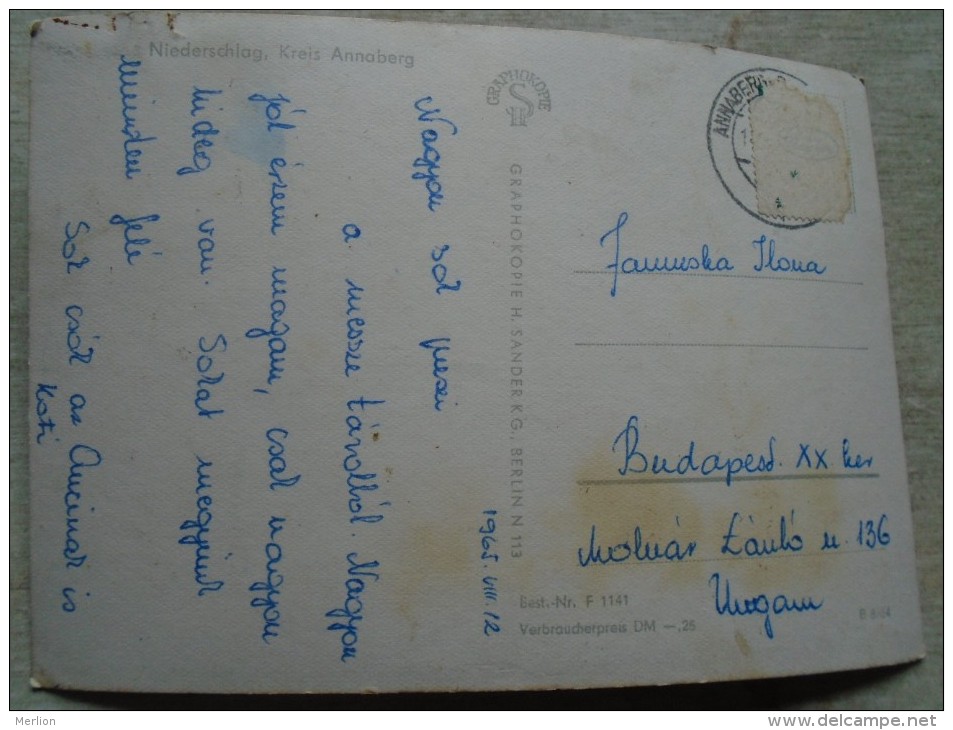 Niederschlag, Kreis Annaberg
Nagyon sok puszi
a messze távolból. Nagyon
jól érzem magam, csak nagyon
hideg van. Sokat megyünk
minden felé
Sok csók az Anciknak is
Kati
GRAPHOKOPIE
GRAPHOKOPIE H. SANDER KG., BERLIN N 113
1965. VIII. 12
ANNABERG
Januska Ilona
Budapest. XX ker
Molnár László u. 136
Ungarn
Best.-Nr. F 1141
Verbraucherpreis DM —,25
Merlion